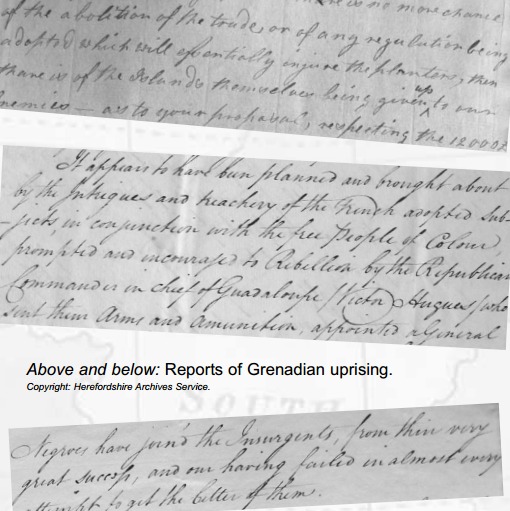 there is no more chance
of the abolition of the trade, or of any regulation being
adopted which will essentially injure the planters, then
there is of the Islands themselves being given up to our
enemies — as to your proposal, respecting the 12000£
It appears to have been planned and brought about
by the Intrigues and treachery of the French adopted Sub-
-jects in conjunction with the free People of Colour
prompted and incouraged to Rebellion by the Republican
Commander in chief of Guadaloupe /Victor Hugues/ who
sent them Arms and Amunition, appointed a General
Above and below: Reports of Grenadian uprising.
Copyright: Herefordshire Archives Service.
SOUTH
Negroes have join'd the Insurgents, from their very
great success, and our having failed in almost every
attempt to get the better of them.